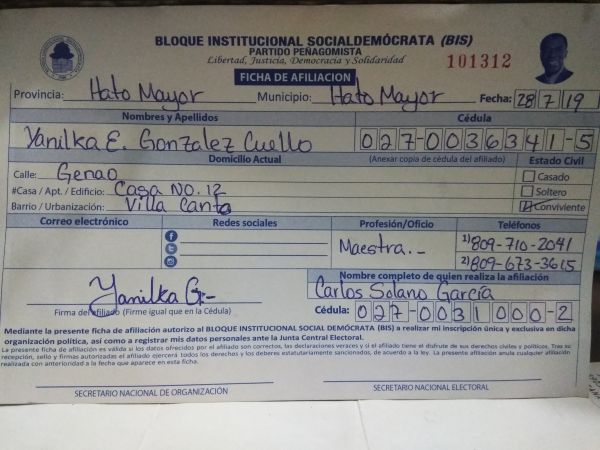 BLOQUE INSTITUCIONAL SOCIALDEMÓCRATA (BIS)
PARTIDO PEÑAGOMISTA
Libertad, Justicia, Democracia y Solidaridad
101312
FICHA DE AFILIACION
Provincia: Hato Mayor Municipio: Hato Mayor Fecha: 28 7 19
Nombres y Apellidos Cédula
Yanilka E. Gonzalez Cuello 027-0036341-5
Domicilio Actual (Anexar copia de cédula del afiliado) Estado Civil
Calle: Genao Casado
#Casa / Apt. / Edificio: Casa NO. 12 Soltero
Barrio / Urbanización: Villa Canto Conviviente
Correo electrónico Redes sociales Profesión/Oficio Teléfonos
Maestra.- 1) 809-710-2041
2) 809-673-3615
Nombre completo de quien realiza la afiliación
Yanilka G.- Carlos Solano García
Firma del afiliado (Firme igual que en la Cédula) Cédula: 027-0031000-2
Mediante la presente ficha de afiliación autorizo al BLOQUE INSTITUCIONAL SOCIAL DEMÓCRATA (BIS) a realizar mi inscripción única y exclusiva en dicha
organización política, así como a registrar mis datos personales ante la Junta Central Electoral.
La presente ficha de afiliación es válida si los datos ofrecidos por el afiliado son correctos, las declaraciones veraces y si el afiliado tiene el disfrute de sus derechos civiles y políticos. Tras su
recepción, sello y firmas autorizadas el afiliado ejercerá todos los derechos y los deberes estatutariamente sancionados, de acuerdo a la ley. La presente afiliación anula cualquier afiliación
realizada con anterioridad a la fecha que aparece en esta ficha.
SECRETARIO NACIONAL DE ORGANIZACIÓN SECRETARIO NACIONAL ELECTORAL